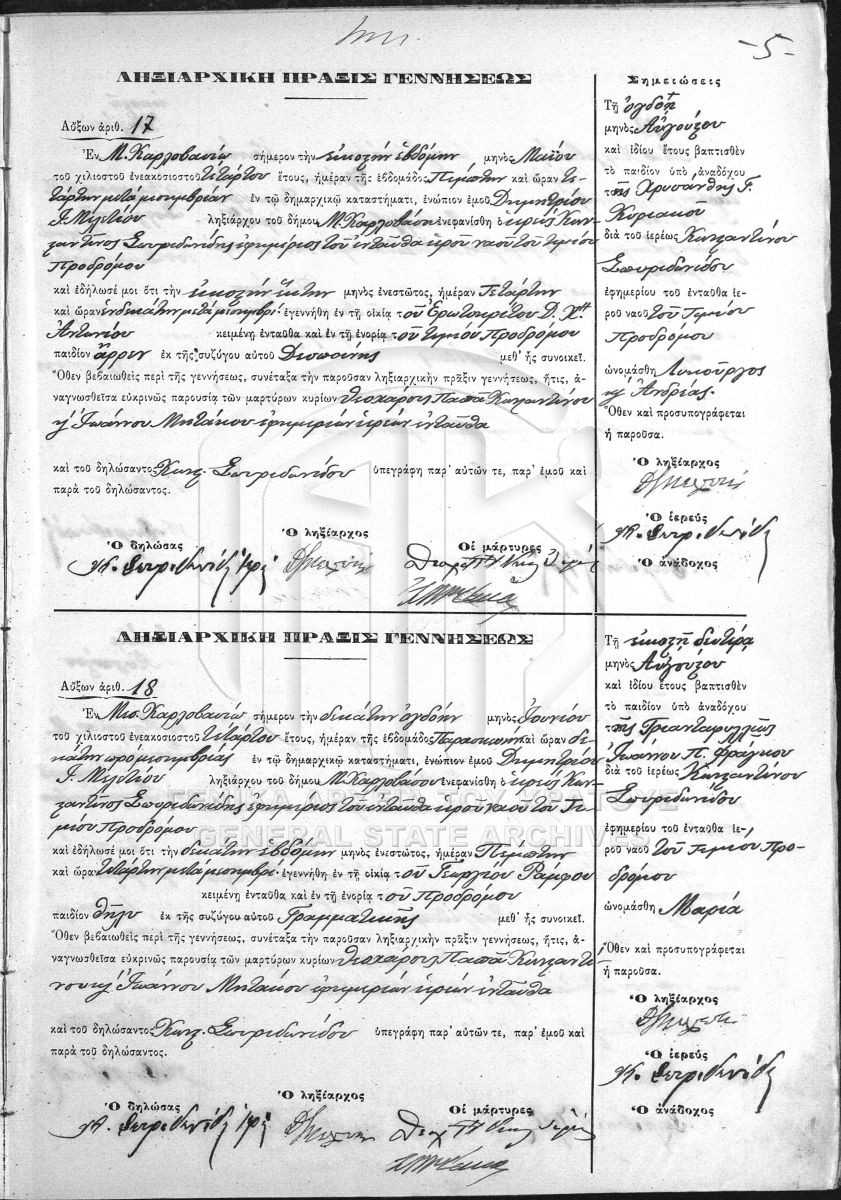 -5-
ΛΗΞΙΑΡΧΙΚΗ ΠΡΑΞΙΣ ΓΕΝΝΗΣΕΩΣ
Αὔξων ἀριθ. 17
Ἐν Μ. Καρλοβασίῳ σήμερον τὴν εἰκοστὴν ἑβδόμην μηνὸς Μαΐου
τοῦ χιλιοστοῦ ἐνεακοσιοστοῦ τετάρτου ἔτους, ἡμέραν τῆς ἑβδομάδος Πέμπτην καὶ ὥραν τε-
τάρτην μετὰ μεσημβρίαν ἐν τῷ δημαρχικῷ καταστήματι, ἐνώπιον ἐμοῦ Δημητρίου
Γ. ληξιάρχου τοῦ δήμου Μ. Καρλοβάσου ἐνεφανίσθη ὁ ἱερεὺς Κων-
σταντῖνος Σπυριδωνίδης ἐφημέριος τοῦ ἐνταῦθα ἱεροῦ ναοῦ τοῦ Τιμίου
Προδρόμου
καὶ ἐδήλωσέ μοι ὅτι τὴν εἰκοστὴν ἕκτην μηνὸς ἐνεστῶτος, ἡμέραν Τετάρτην
καὶ ὥραν ἑνδεκάτην μετὰ μεσημβρί. ἐγεννήθη ἐν τῇ οἰκίᾳ τοῦ Ἐρωτοκρίτου Δ. Χ"
Ἀντωνίου κειμένῃ ἐνταῦθα καὶ ἐν τῇ ἐνορίᾳ τοῦ τιμίου Προδρόμου
παιδίον ἄρρεν ἐκ τῆς συζύγου αὐτοῦ Δεσποίνης μεθ' ἧς συνοικεῖ.
Ὅθεν βεβαιωθεὶς περὶ τῆς γεννήσεως, συνέταξα τὴν παροῦσαν ληξιαρχικὴν πρᾶξιν γεννήσεως, ἥτις, ἀ-
ναγνωσθεῖσα εὐκρινῶς παρουσίᾳ τῶν μαρτύρων κυρίων Θεοχάρους Παπᾶ Κωνσταντίνου
κ' Ἰωάννου Μητάκου ἐφημερίων ἱερέων ἐνταῦθα
καὶ τοῦ δηλώσαντος Κωνσ. Σπυριδωνίδου ὑπεγράφη παρ' αὐτῶν τε, παρ' ἐμοῦ καὶ
παρὰ τοῦ δηλώσαντος.
Ὁ δηλώσας Ὁ ληξίαρχος Οἱ μάρτυρες
Κ. Σπυριδωνίδης
Σημειώσεις
Τῇ ὀγδόῃ
μηνὸς Αὐγούστου
καὶ ἰδίου ἔτους βαπτισθὲν
τὸ παιδίον ὑπὸ ἀναδόχου
τῆς Χρυσάνθης Γ.
Κυριακοῦ
διὰ τοῦ ἱερέως Κωνσταντίνου
Σπυριδωνίδου
ἐφημερίου τοῦ ἐνταῦθα ἱε-
ροῦ ναοῦ τοῦ Τιμίου
Προδρόμου
ὠνομάσθη Λυκοῦργος
κ' Ἀνδρέας.
Ὅθεν καὶ προσυπογράφεται
ἡ παροῦσα.
Ὁ ληξίαρχος
Ὁ ἱερεὺς
Κ. Σπυριδωνίδης
Ὁ ἀνάδοχος
ΛΗΞΙΑΡΧΙΚΗ ΠΡΑΞΙΣ ΓΕΝΝΗΣΕΩΣ
Αὔξων ἀριθ. 18
Ἐν Μεσ. Καρλοβασίῳ σήμερον τὴν δεκάτην ὀγδόην μηνὸς Ἰουνίου
τοῦ χιλιοστοῦ ἐνεακοσιοστοῦ τετάρτου ἔτους, ἡμέραν τῆς ἑβδομάδος Παρασκευὴν καὶ ὥραν δε-
κάτην πρὸ μεσημβρίας ἐν τῷ δημαρχικῷ καταστήματι, ἐνώπιον ἐμοῦ Δημητρίου
Γ. ληξιάρχου τοῦ δήμου Μ. Καρλοβάσου ἐνεφανίσθη ὁ ἱερεὺς Κων-
σταντῖνος Σπυριδωνίδης ἐφημέριος τοῦ ἐνταῦθα ἱεροῦ ναοῦ τοῦ Τι-
μίου Προδρόμου
καὶ ἐδήλωσέ μοι ὅτι τὴν δεκάτην ἑβδόμην μηνὸς ἐνεστῶτος, ἡμέραν Πέμπτην
καὶ ὥραν τετάρτην μετὰ μεσημβρί. ἐγεννήθη ἐν τῇ οἰκίᾳ τοῦ Γεωργίου Ράμφου
κειμένῃ ἐνταῦθα καὶ ἐν τῇ ἐνορίᾳ τοῦ Προδρόμου
παιδίον θῆλυ ἐκ τῆς συζύγου αὐτοῦ Γραμματικῆς μεθ' ἧς συνοικεῖ.
Ὅθεν βεβαιωθεὶς περὶ τῆς γεννήσεως, συνέταξα τὴν παροῦσαν ληξιαρχικὴν πρᾶξιν γεννήσεως, ἥτις, ἀ-
ναγνωσθεῖσα εὐκρινῶς παρουσίᾳ τῶν μαρτύρων κυρίων Θεοχάρους Παπᾶ Κωνσταντί-
νου κ' Ἰωάννου Μητάκου ἐφημερίων ἱερέων ἐνταῦθα
καὶ τοῦ δηλώσαντος Κωνσ. Σπυριδωνίδου ὑπεγράφη παρ' αὐτῶν τε, παρ' ἐμοῦ καὶ
παρὰ τοῦ δηλώσαντος.
Ὁ δηλώσας Ὁ ληξίαρχος Οἱ μάρτυρες
Κ. Σπυριδωνίδης
Τῇ εἰκοστῇ δευτέρᾳ
μηνὸς Αὐγούστου
καὶ ἰδίου ἔτους βαπτισθὲν
τὸ παιδίον ὑπὸ ἀναδόχου
τῆς Τριανταφυλλιᾶς
Ἰωάννου Π. Φράγκου
διὰ τοῦ ἱερέως Κωνσταντίνου
Σπυριδωνίδου
ἐφημερίου τοῦ ἐνταῦθα ἱε-
ροῦ ναοῦ τοῦ Τιμίου Προ-
δρόμου
ὠνομάσθη Μαρία
Ὅθεν καὶ προσυπογράφεται
ἡ παροῦσα.
Ὁ ληξίαρχος
Ὁ ἱερεὺς
Κ. Σπυριδωνίδης
Ὁ ἀνάδοχος
GENERAL STATE ARCHIVES